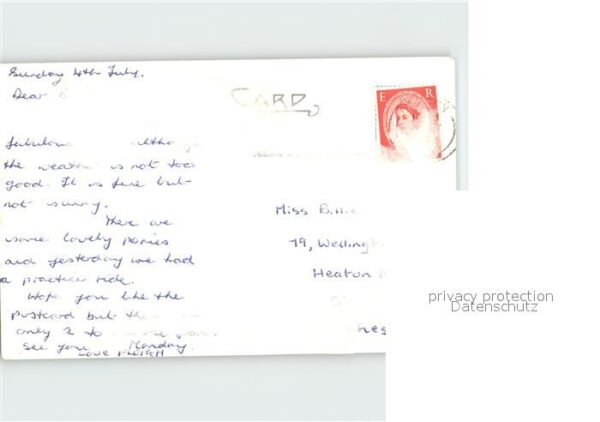 Sunday 4th July.
Dear
CARD
E R
fabulous although
the weather is not too
good. It is fine but
not sunny.
There are
some lovely ponies
and yesterday we had
a practice ride.
Hope you like the
Postcard but the
only 2 to
see you Monday
Love
Miss Billie
79, Welling
Heaton
ches
privacy protection
Datenschutz